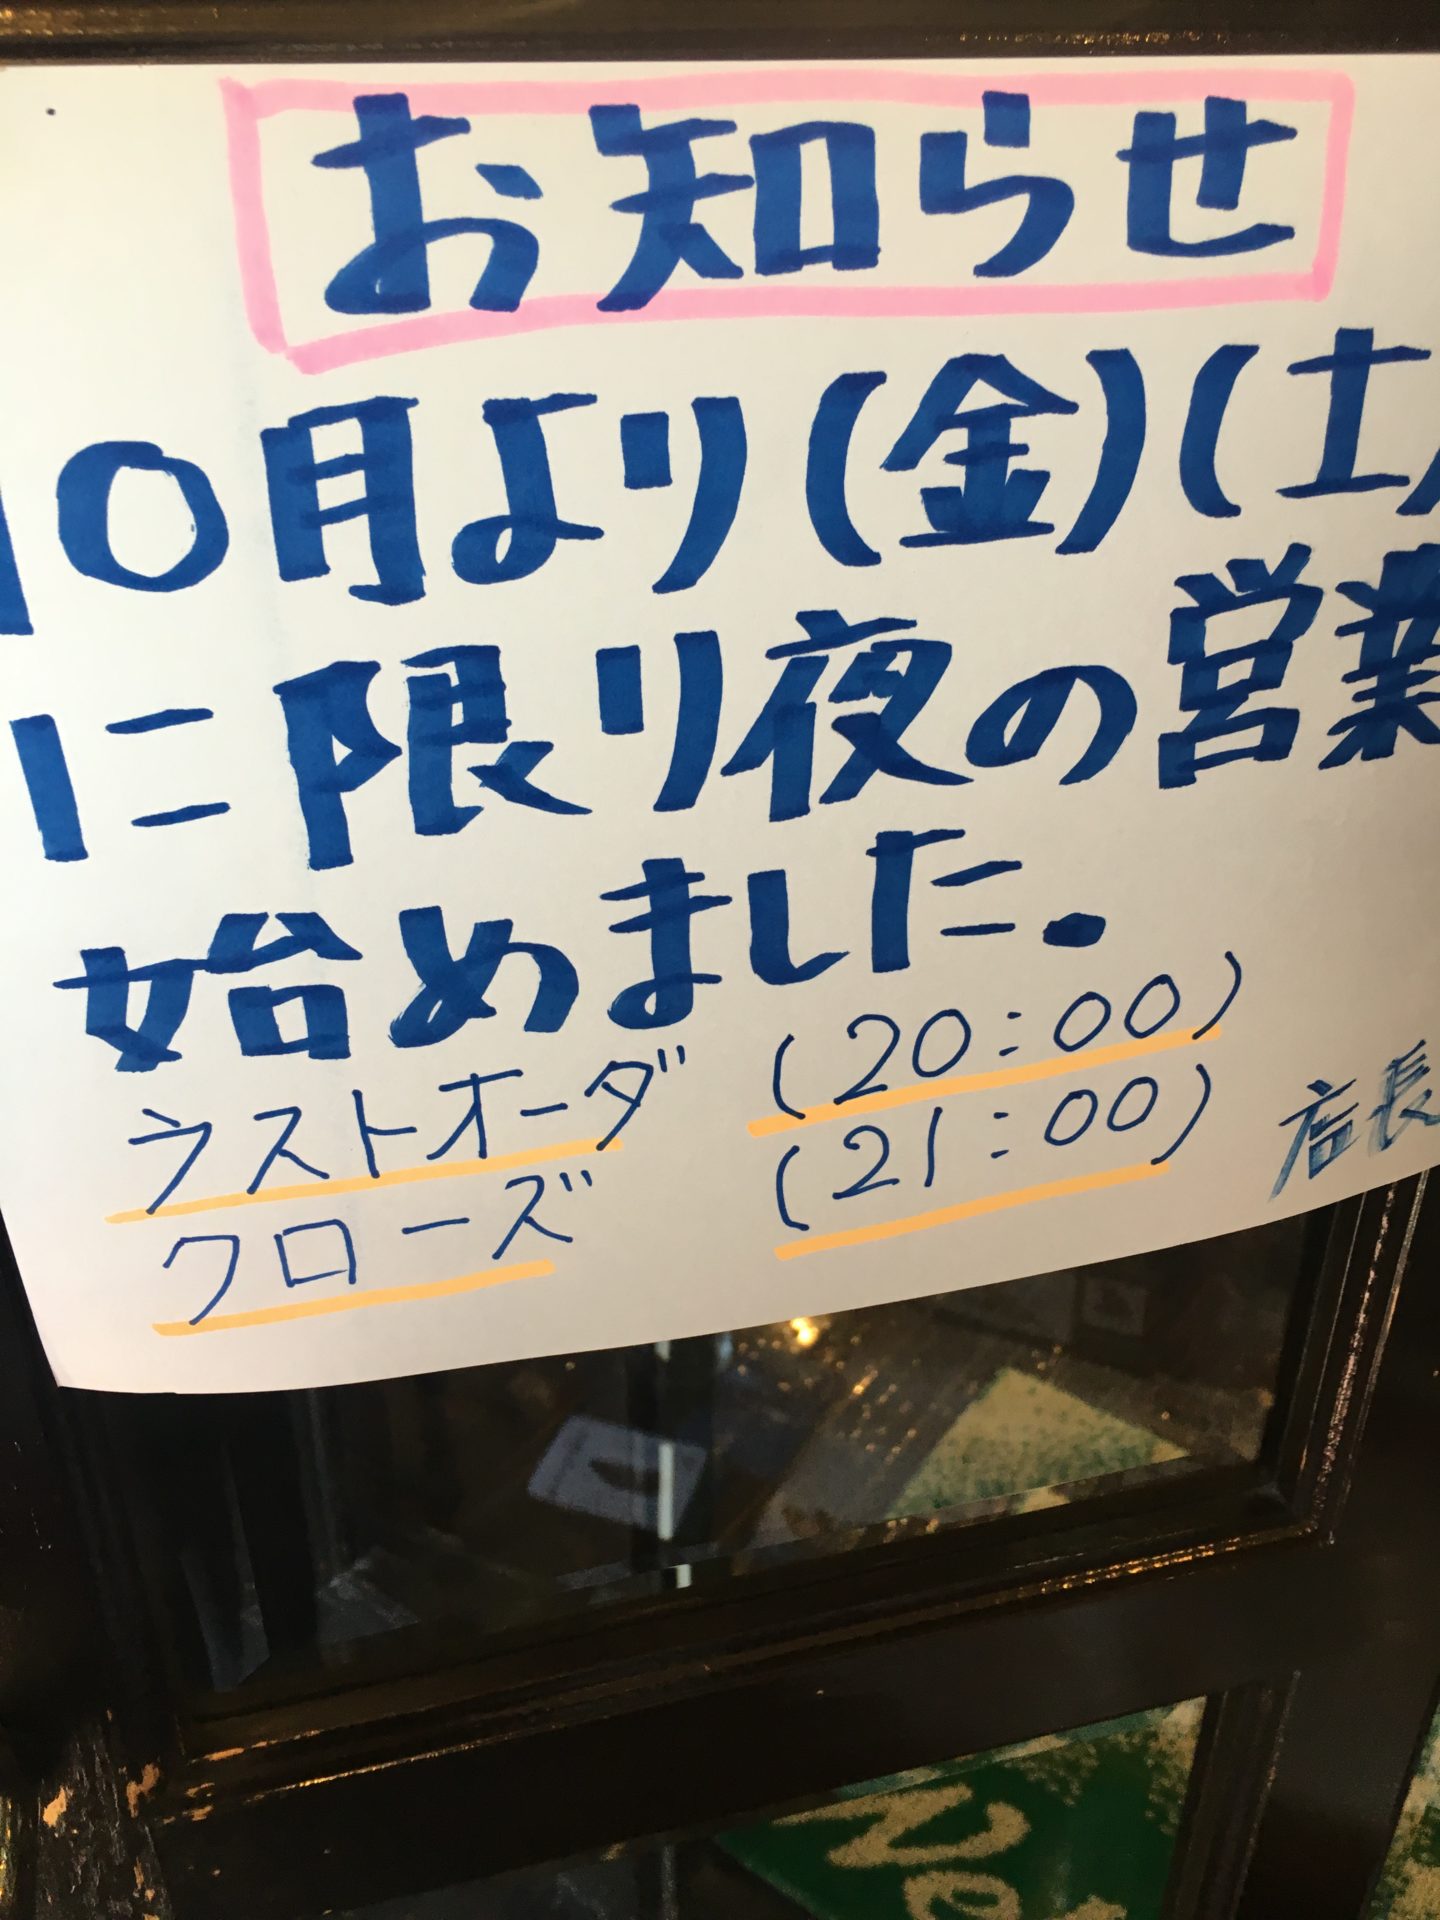 お知らせ
10月より(金)(土)
に限り夜の営業
始めました.
ラストオーダ (20:00)
クローズ (21:00) 店長